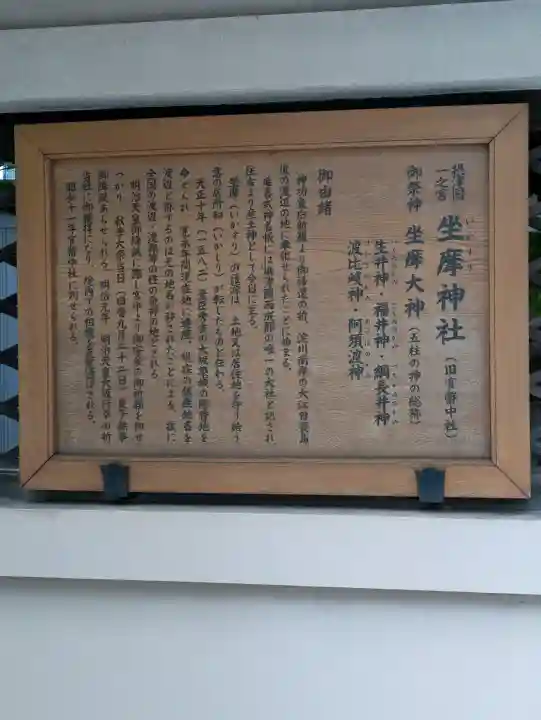 摂津国
一之宮
坐摩神社
いかすり
(旧官幣中社)
御祭神 坐摩大神(五柱の神の総称)
生井神・福井神・綱長井神
波比岐神・阿須波神
御由緒
神功皇后新羅より御帰還の折、淀川南岸の大江
の渡辺の地に奉祀せられたことに始まる。
延喜式神名帳には摂津国西成郡の唯一の大社と記され、
住吉より産土神として今日に至る。
坐摩(いかすり)の語源は、土地又は居住地を守り給う
意の居所知(いかしり)が転じたものと伝わる。
天正十年(一五八二)豊臣秀吉の大坂築城の際替地を
命ぜられ、寛永年間現在地に遷座。
渡辺と称するのは元の地名が移されたことによる。故に
全国の渡辺・渡部等の姓の発祥の地とされる。
明治天皇
秋季大祭当日(旧暦九月二十二日)
明治元年、明治天皇大阪行幸の折
当社に御親拝になり、
昭和十一年官幣中社に列せられる。